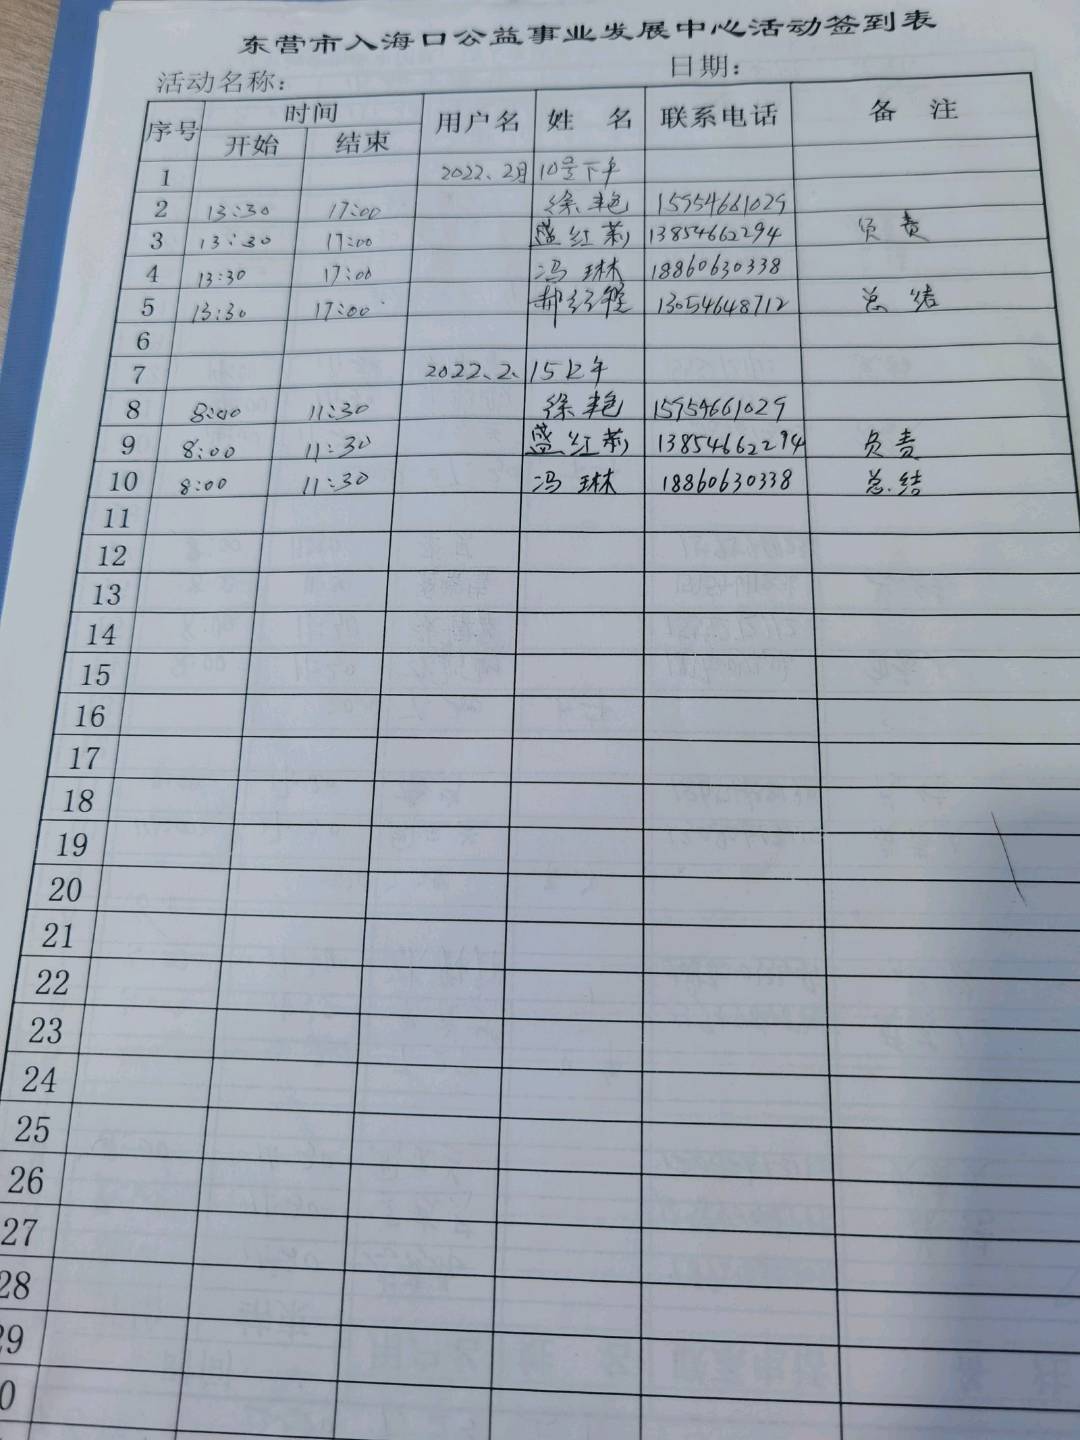 东营市入海口公益事业发展中心活动签到表
活动名称： 日期：
序号 时间 用户名 姓 名 联系电话 备 注
开始 结束
1 2022、2月 10号下午
2 13:30 17:00 徐艳 15954661029
3 13:30 17:00 盛红莉 13854662294 负责
4 13:30 17:00 冯琳 18860630338
5 13:30 17:00 郝经程 13054648712 总结
6
7 2022、2、15上午
8 8:00 11:30 徐艳 15954661029
9 8:00 11:30 盛红莉 13854662294 负责
10 8:00 11:30 冯琳 18860630338 总结
11
12
13
14
15
16
17
18
19
20
21
22
23
24
25
26
27
28
29
0